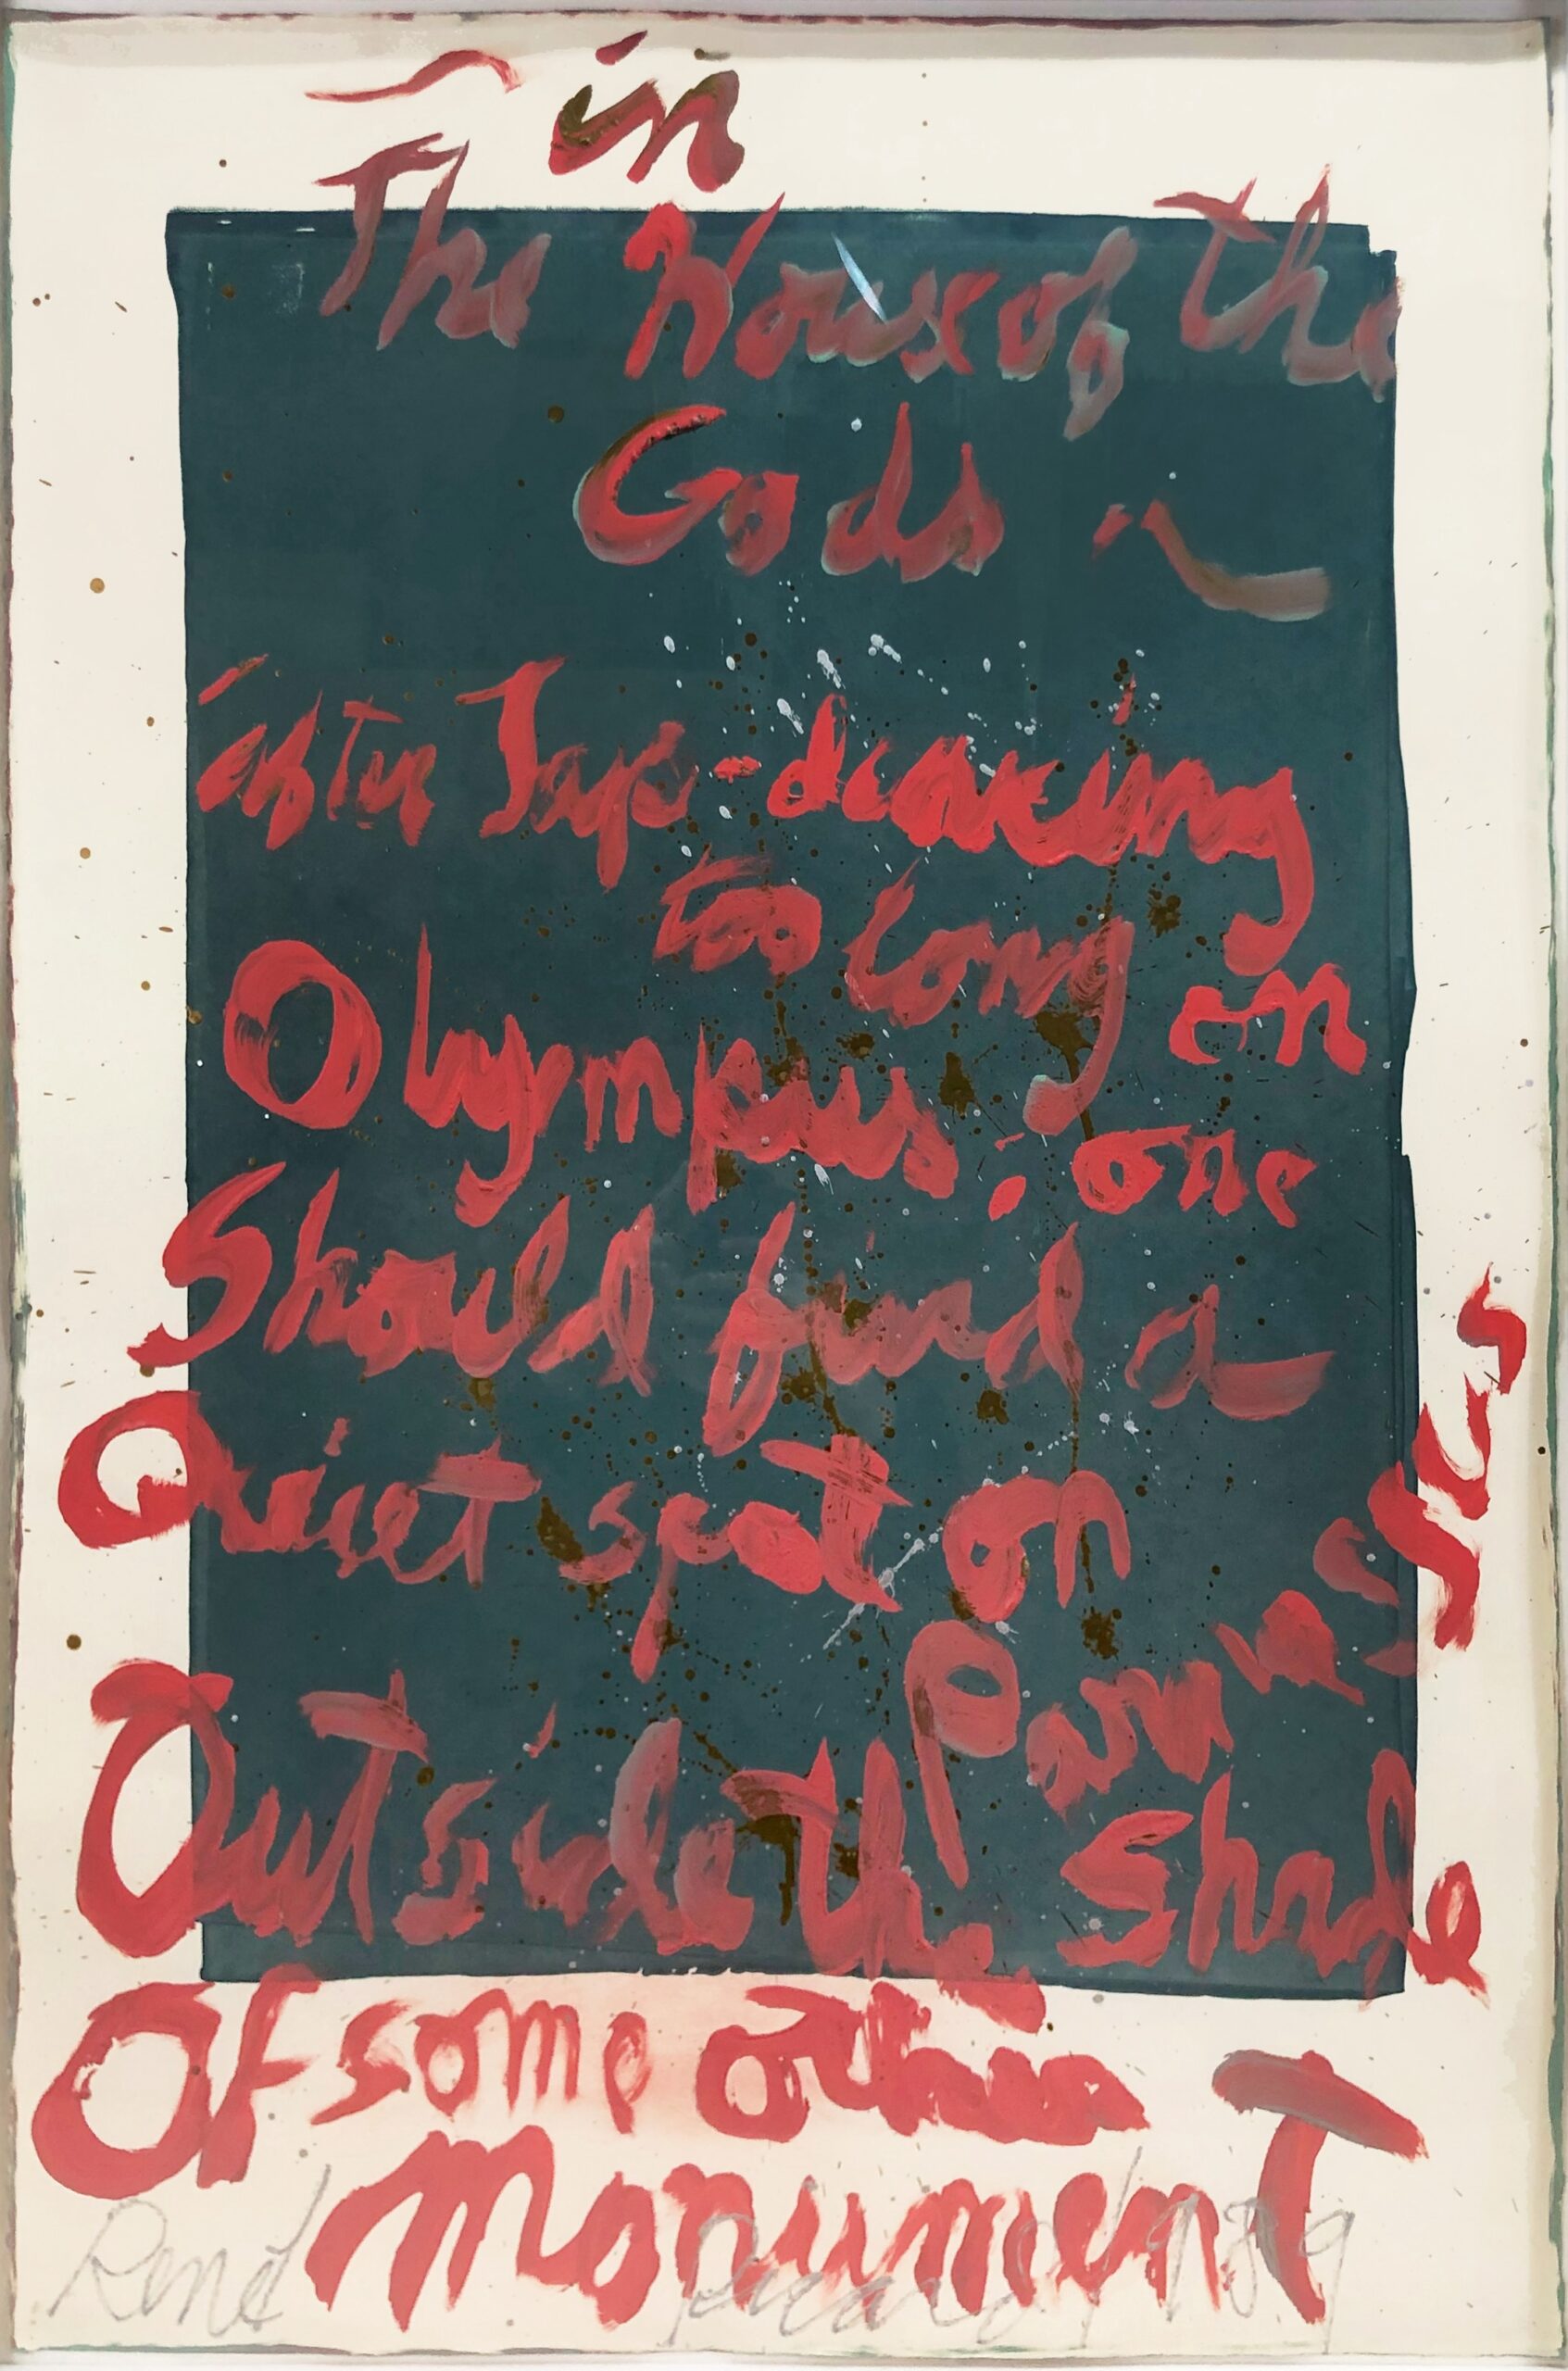 in
The House of the
Gods
after Tap-dancing
too long on
Olympus; one
Should find a
Quiet spot on
Parnassus
Outside the shade
Of some other
MonumenT
René Ricard 1989